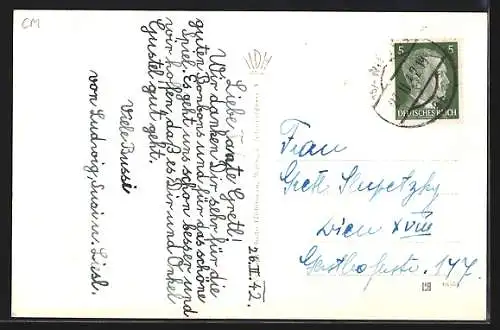 CM
26.II.42.
Liebe Tante Gretl!
Wir danken Dir sehr für die
guten Bonbons und für das schöne
Spiel. Es geht uns schon besser und
wir hoffen, daß es Dir und Onkel
Gustel gut geht.
Viele Bussi
von Ludwig, Susi u. Liesl.
5 5
DEUTSCHES REICH
Frau
Gretl
Wien XVIII
Gersthoferstr. 177.